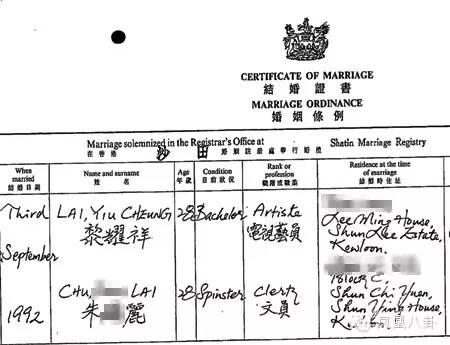 CERTIFICATE OF MARRIAGE
結婚證書
MARRIAGE ORDINANCE
婚姻條例
Marriage solemnized in the Registrar's Office at Shatin Marriage Registry
在香港 沙田 婚姻註冊處舉行婚禮
When married
結婚日期
Name and surname
姓名
Age
年歲
Condition
目前狀況
Rank or profession
職階或職業
Residence at the time of marriage
結婚時住址
Third September 1992
LAI, Yiu CHEUNG
黎耀祥
28
Bachelor
Artiste
電視藝員
Lee Ming House,
Shun Lee Estate,
Kowloon.
CHU, LAI
朱 麗
28
Spinster
Clerk
文員
Block C,
Shun Chi Yuen,
Shun Ying House,
凤凰八卦